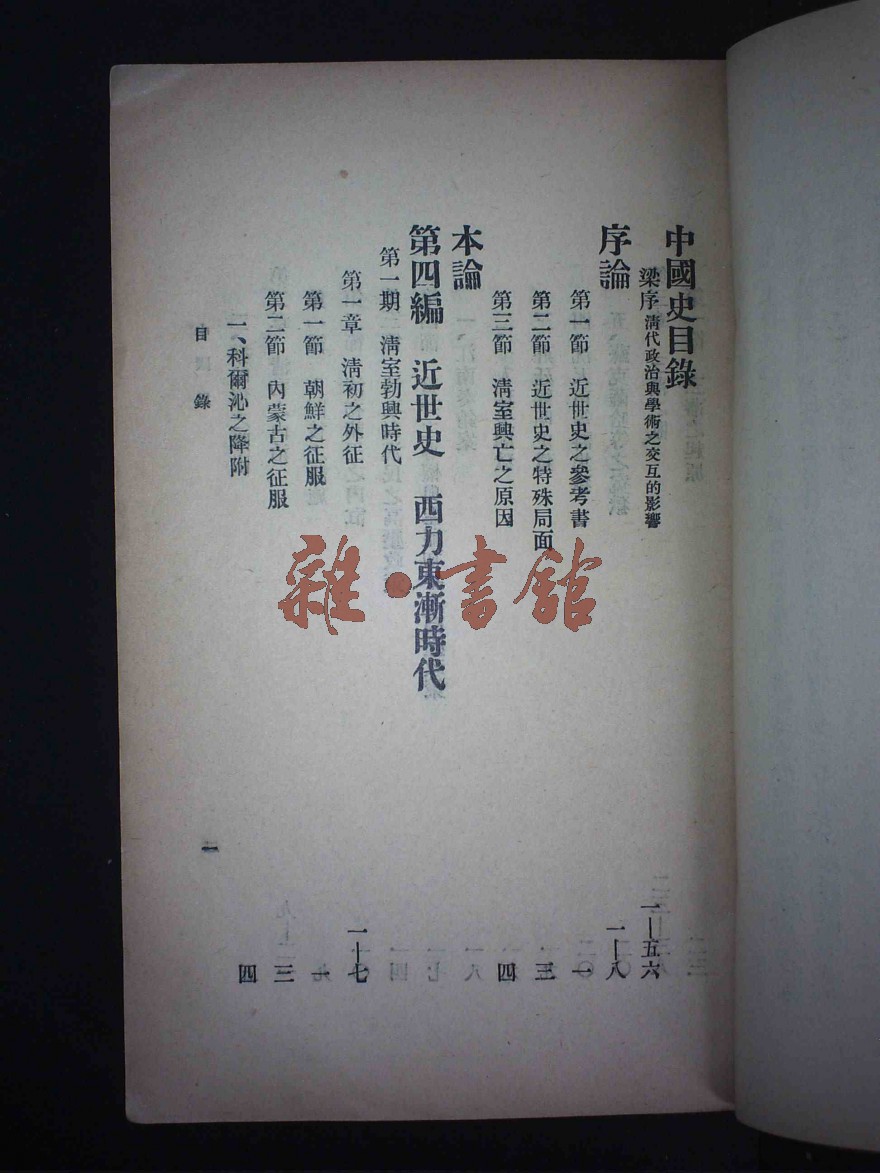 中國史目錄
梁序 清代政治與學術之交互的影響 一—五六
序論 一—八
第一節 近世史之參考書 一
第二節 近世史之特殊局面 三
第三節 淸室興亡之原因 四
本論
第四編 近世史 西力東漸時代
第一期 淸室勃興時代
第一章 淸初之外征 一—七
第一節 朝鮮之征服 一
第二節 內蒙古之征服 三
一、科爾沁之降附 四
目錄
一
雜·書館